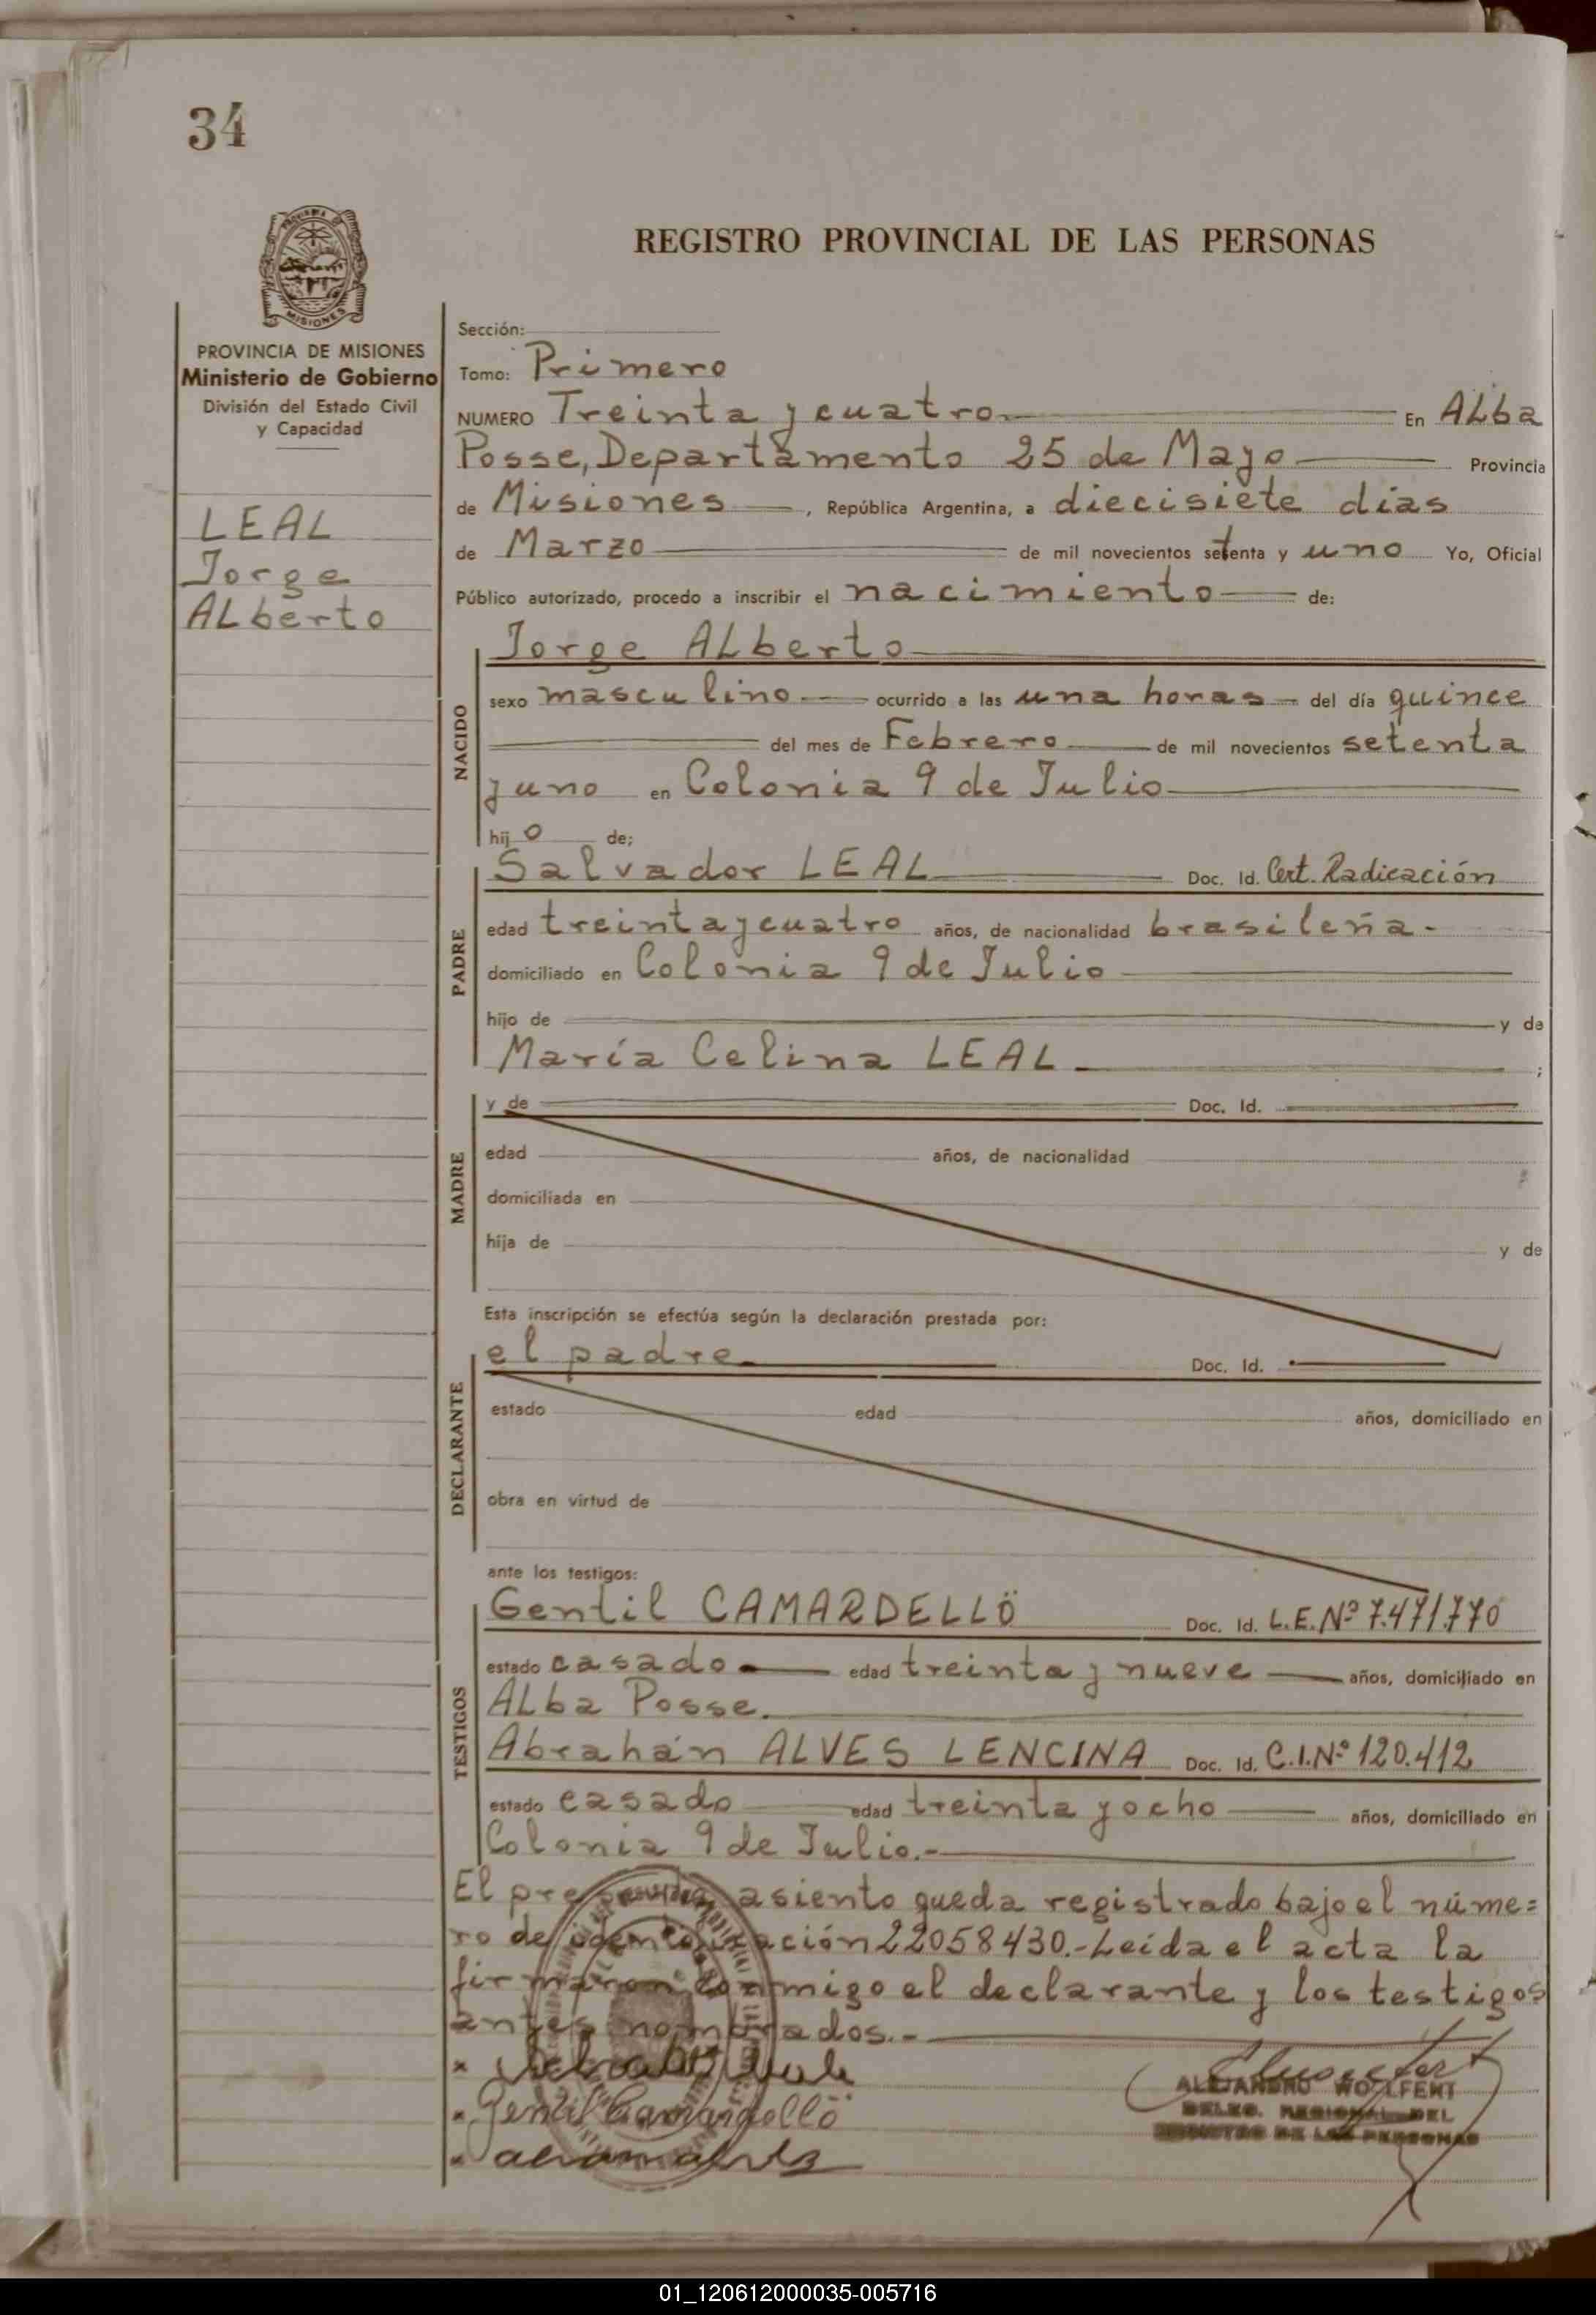 34
REGISTRO PROVINCIAL DE LAS PERSONAS
MISIONES
PROVINCIA DE MISIONES
Ministerio de Gobierno
División del Estado Civil
y Capacidad
LEAL
Jorge
ALberto
Sección:
Tomo: Primero
NUMERO Treinta y cuatro. En ALba
Posse, Departamento 25 de Mayo Provincia
de Misiones, República Argentina, a diecisiete dias
de Marzo de mil novecientos setenta y uno Yo, Oficial
Público autorizado, procedo a inscribir el nacimiento de:
NACIDO
Jorge ALberto
sexo masculino ocurrido a las una horas del día quince
del mes de Febrero de mil novecientos setenta
y uno en Colonia 9 de Julio
hijo de;
PADRE
Salvador LEAL Doc. Id. Cert. Radicación
edad treinta y cuatro años, de nacionalidad brasileña.-
domiciliado en Colonia 9 de Julio
hijo de y de
María Celina LEAL ;
MADRE
y de Doc. Id.
edad años, de nacionalidad
domiciliada en
hija de y de
Esta inscripción se efectúa según la declaración prestada por:
DECLARANTE
el padre Doc. Id.
estado edad años, domiciliado en
obra en virtud de
ante los testigos:
TESTIGOS
Gentil CAMARDELLÖ Doc. Id. L.E.Nº 7.471.770
estado casado edad treinta y nueve años, domiciliado en
ALba Posse.
Abrahán ALVES LENCINA Doc. Id. C.I.Nº 120.412
estado casado edad treinta y ocho años, domiciliado en
Colonia 9 de Julio.-
El presente asiento queda registrado bajo el núme=
ro de identificación 22058430.-Leída el acta la
firmaron conmigo el declarante y los testigos
antes nombrados.-
Gentil Camardellö
ALEJANDRO WOLFENT
DELEG. REGIONAL DEL
REGISTRO DE LAS PERSONAS
01_120612000035-005716